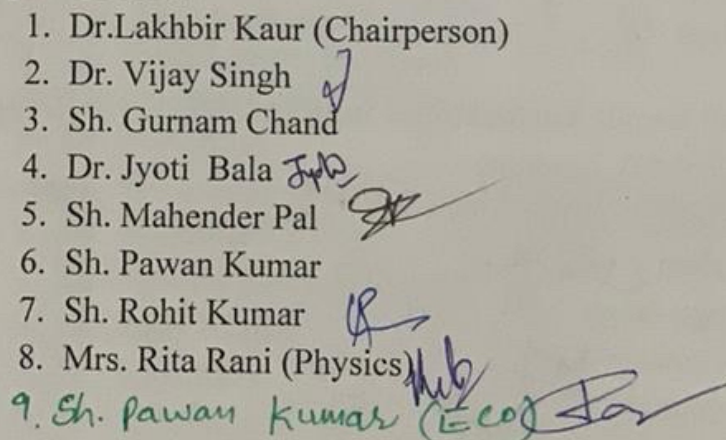 1. Dr.Lakhbir Kaur (Chairperson)
2. Dr. Vijay Singh
3. Sh. Gurnam Chand
4. Dr. Jyoti Bala
5. Sh. Mahender Pal
6. Sh. Pawan Kumar
7. Sh. Rohit Kumar
8. Mrs. Rita Rani (Physics)
9. Sh. Pawan Kumar (Eco)